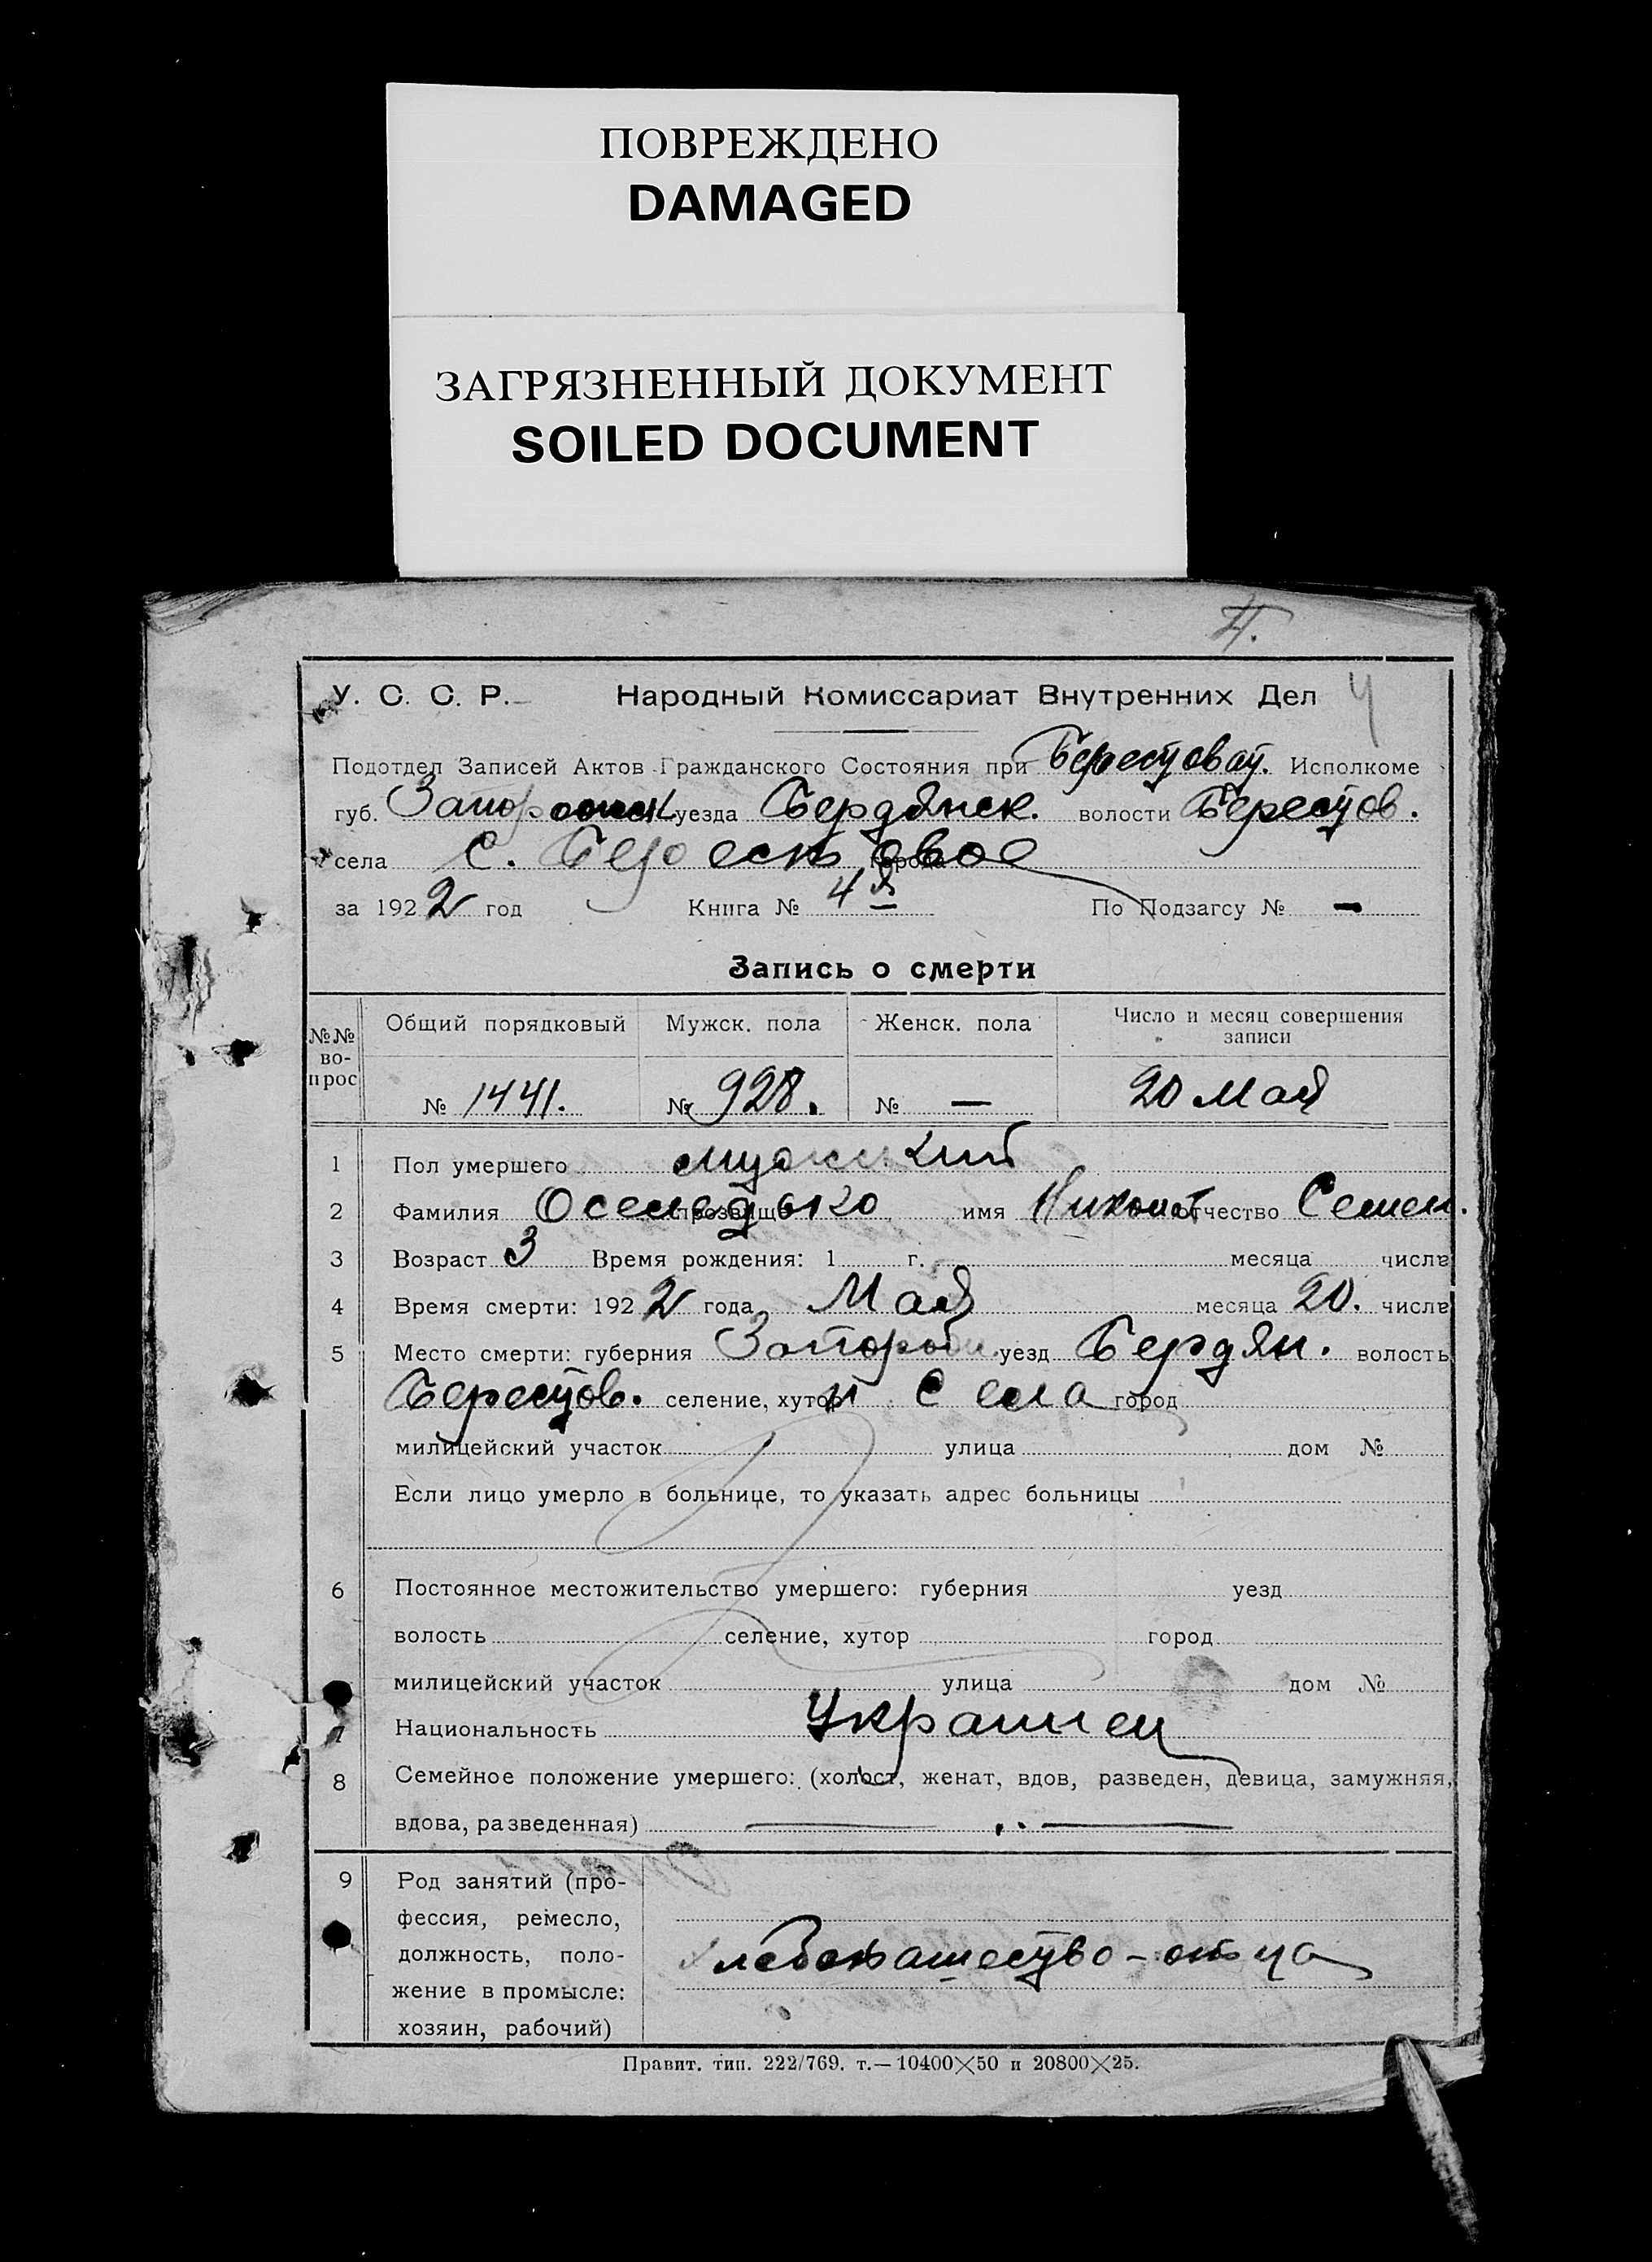 ПОВРЕЖДЕНО
DAMAGED
ЗАГРЯЗНЕННЫЙ ДОКУМЕНТ
SOILED DOCUMENT
У. С. С. Р. Народный Комиссариат Внутренних Дел 4
Подотдел Записей Актов Гражданского Состояния при Исполкоме
губ. уезда Бердянск. волости Берестов.
села с. Берестовое города
за 1922 год Книга № 4я По Подзагсу № —
Запись о смерти
№№ во-прос Общий порядковый Мужск. пола Женск. пола Число и месяц совершения записи
№ 1441. № 928. № — 20 Мая
1 Пол умершего мужской
2 Фамилия Оселедько прозвище имя отчество Семен.
3 Возраст 3 Время рождения: 1 г. месяца числа
4 Время смерти: 1922 года Мая месяца 20. числа
5 Место смерти: губерния уезд Бердян. волость
Берестов. селение, хутор Села город
милицейский участок улица дом №
Если лицо умерло в больнице, то указать адрес больницы
6 Постоянное местожительство умершего: губерния уезд
волость селение, хутор город
милицейский участок улица дом №
7 Национальность Украинец
8 Семейное положение умершего: (холост, женат, вдов, разведен, девица, замужняя,
вдова, разведенная) — . . —
9 Род занятий (про-
фессия, ремесло,
должность, поло- хлебопашество - отца
жение в промысле:
хозяин, рабочий)
Правит. тип. 222/769. т.—10400×50 и 20800×25.